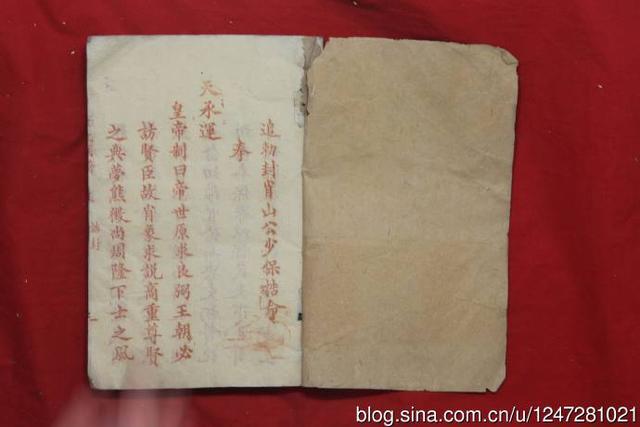 追勅封肖山公少保誥命
奉
天承運
皇帝制曰帝世原求良弼王朝必
訪賢臣故肖象求説商重尊賢
之典夢熊徵尚周隆下士之風
誥封
一
blog.sina.com.cn/u/1247281021